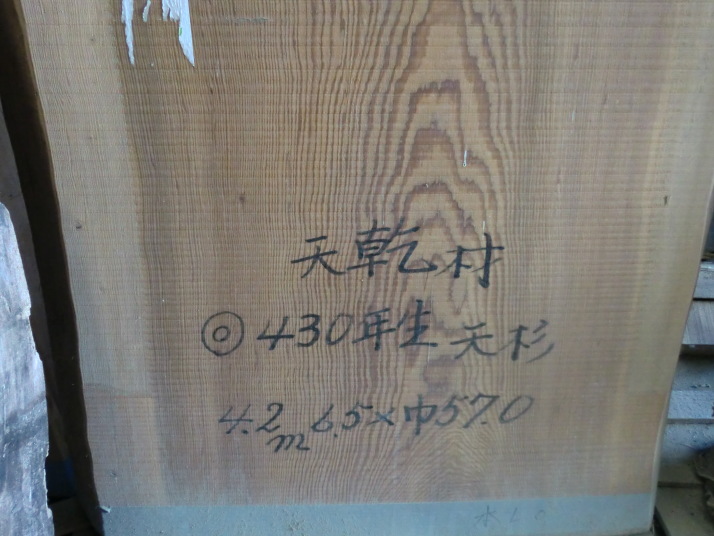 天乾材
◎430年生 天杉
4.2m 6.5×巾57.0